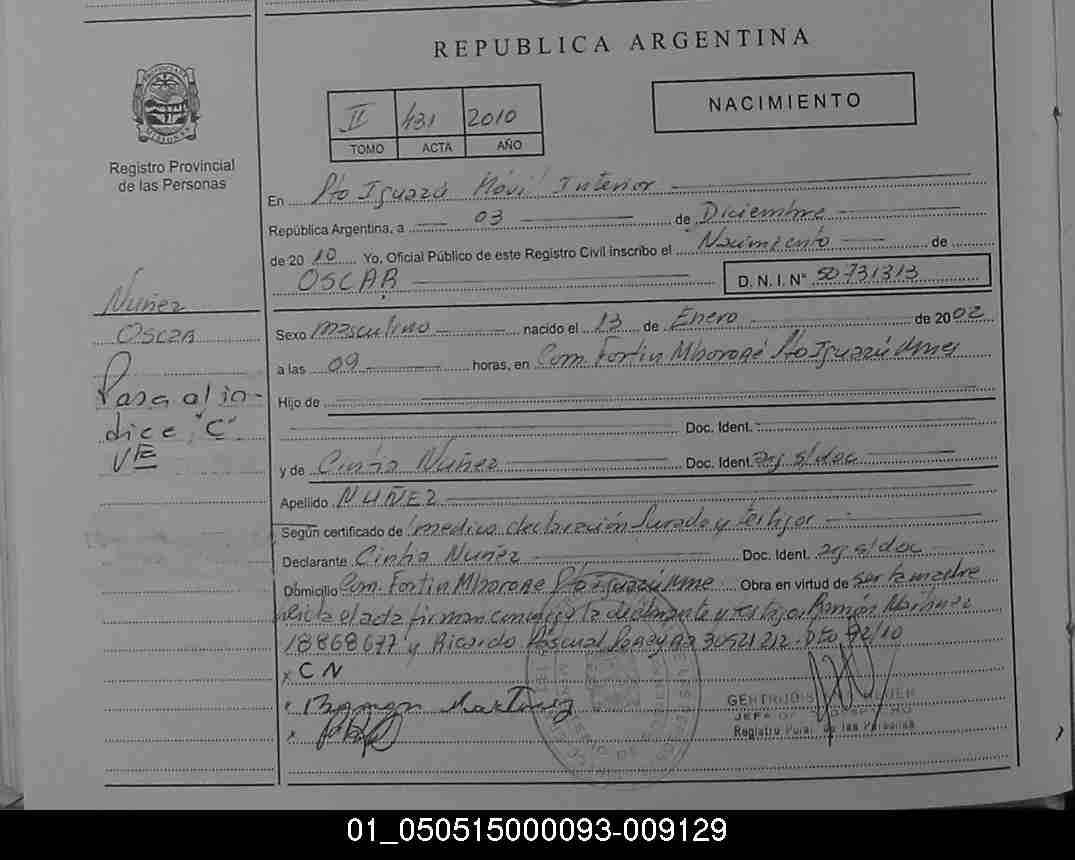 REPUBLICA ARGENTINA
NACIMIENTO
II 431 2010
TOMO ACTA AÑO
Registro Provincial
de las Personas
En Pto Iguazú Móvil Interior
República Argentina, a 03 de Diciembre
de 2010 Yo, Oficial Público de este Registro Civil inscribo el Nacimiento de
OSCAR D. N. I. N° 50.731313
Nuñez
OSCAR
Pasa al in-
dice "C".
Sexo masculino nacido el 13 de Enero de 2002
a las 09 horas, en Com. Fortin Mbororé Pto Iguazú Mnes
Hijo de
Doc. Ident.
y de Cintia Nuñez Doc. Ident. arg s/doc
Apellido NUÑEZ
Según certificado de medico declaración Jurada y testigos
Declarante Cintia Nuñez Doc. Ident. arg s/doc
Domicilio Com. Fortin Mbororé Pto Iguazú Mnes Obra en virtud de ser la madre
el acta firman conmigo la declarante y testigos Ramón Martinez
18868677 y Ricardo Pascual 30521212
x C N
Ramon Martinez
x
JEFA
Registro de las Personas
01_050515000093-009129